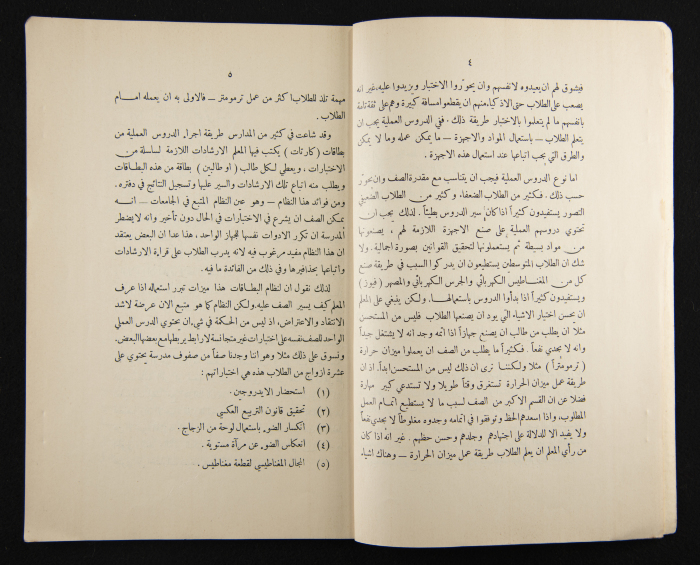 ٤
فيشوق لهم ان يعيدوه لانفسهم وان يحوّروا الاختبار ويزيدوا عليه، غير انه
يصعب على الطلاب حتى الاذكياء منهم ان يقطعوا مسافة كبيرة وهم على ثقة تامة
بانفسهم ما لم يتعلموا بالاختبار طريقة ذلك . ففي الدروس العملية يجب ان
يتعلم الطلاب – باستعمال المواد والاجهزة – ما يمكن عمله وما لا يمكن
والطرق التي يجب اتباعها عند استعمال هذه الاجهزة .
اما نوع الدروس العملية فيجب ان يتناسب مع مقدرة الصف وان يحوّر
حسب ذلك . فكثير من الطلاب الضعفاء وكثير من الطلاب الضعيفي
التصور يستفيدون كثيراً اذا كان سير الدروس بطيئاً . لذلك يجب ان
تحتوي دروسهم العملية على صنع الاجهزة اللازمة لهم ، يصنعونها
من مواد بسيطة ثم يستعملونها لتحقيق القوانين بصورة اجمالية . ولا
شك ان الطلاب المتوسطين يستطيعون ان يدركوا السبب في طريقة صنع
كل من المغناطيس الكهربائي والجرس الكهربائي والمصهر ( فيوز )
ويستفيدون كثيراً اذا بدأوا الدروس باستعمالها . ولكن ينبغي على المعلم
ان يحسن اختيار الاشياء التي يود ان يصنعها الطلاب فليس من المستحسن
مثلا ان يطلب من طالب ان يصنع جهازاً اذا اتمه وجد انه لا يشتغل جيداً
وانه لا يجدي نفعاً . فكثيراً ما يطلب من الصف ان يعملوا ميزان حرارة
( ترمومتراً ) مثلا ولكننا نرى ان ذلك ليس من المستحسن ابداً . اذ ان
طريقة عمل ميزان الحرارة تستغرق وقتاً طويلا ولا تستدعي كبير مهارة
فضلا عن ان القسم الاكبر من الصف لسبب ما لا يستطيع اتمام العمل
المطلوب، واذا اسعدهم الحظ وتوفقوا في اتمامه وجدوه مغلوطاً لا يجدي نفعاً
ولا يفيد الا للدلالة على اجتهادهم وجلدهم وحسن حظهم . غير انه اذا كان
من رأي المعلم ان يعلم الطلاب طريقة عمل ميزان الحرارة – وهناك اشياء
٥
مهمة تلذ للطلاب اكثر من عمل ترمومتر – فالاولى به ان يعمله امام
الطلاب .
وقد شاعت في كثير من المدارس طريقة اجراء الدروس العملية من
بطاقات ( كارتات ) يكتب فيها المعلم الارشادات اللازمة لسلسلة من
الاختبارات ، ويعطي لكل طالب ( او طالبين ) بطاقة من هذه البطاقات
ويطلب منه اتباع تلك الارشادات والسير عليها وتسجيل النتائج في دفتره .
ومن فوائد هذا النظام – وهو عين النظام المتبع في الجامعات – انه
يمكن الصف ان يشرع في الاختبارات في الحال دون تأخير وانه لا يضطر
المدرسة ان تكرر الادوات نفسها للجهاز الواحد ، هذا عدا ان البعض يعتقد
ان هذا النظام مفيد مرغوب فيه لانه يدرب الطلاب على قراءة الارشادات
واتباعها بحذافيرها وفي ذلك من الفائدة ما فيه .
لذلك نقول ان لنظام البطاقات هذا ميزات تبرر استعماله اذا عرف
المعلم كيف يسير الصف عليه . ولكن النظام كما هو متبع الان عرضة لاشد
الانتقاد والاعتراض، اذ ليس من الحكمة في شيء ان يحتوي الدرس العملي
الواحد للصف نفسه على اختبارات غير متجانسة لا رابط يربطها مع بعضها البعض .
ونسوق على ذلك مثلا وهو اننا وجدنا صفاً من صفوف مدرسة يحتوي على
عشرة ازواج من الطلاب هذه هي اختباراتهم :
(١) استحضار الايدروجين .
(٢) تحقيق قانون التربيع العكسي
(٣) انكسار الضوء باستعمال لوحة من الزجاج .
(٤) انعكاس الضوء عن مرآة مستوية .
(٥) المجال المغناطيسي لقطعة مغناطيس .